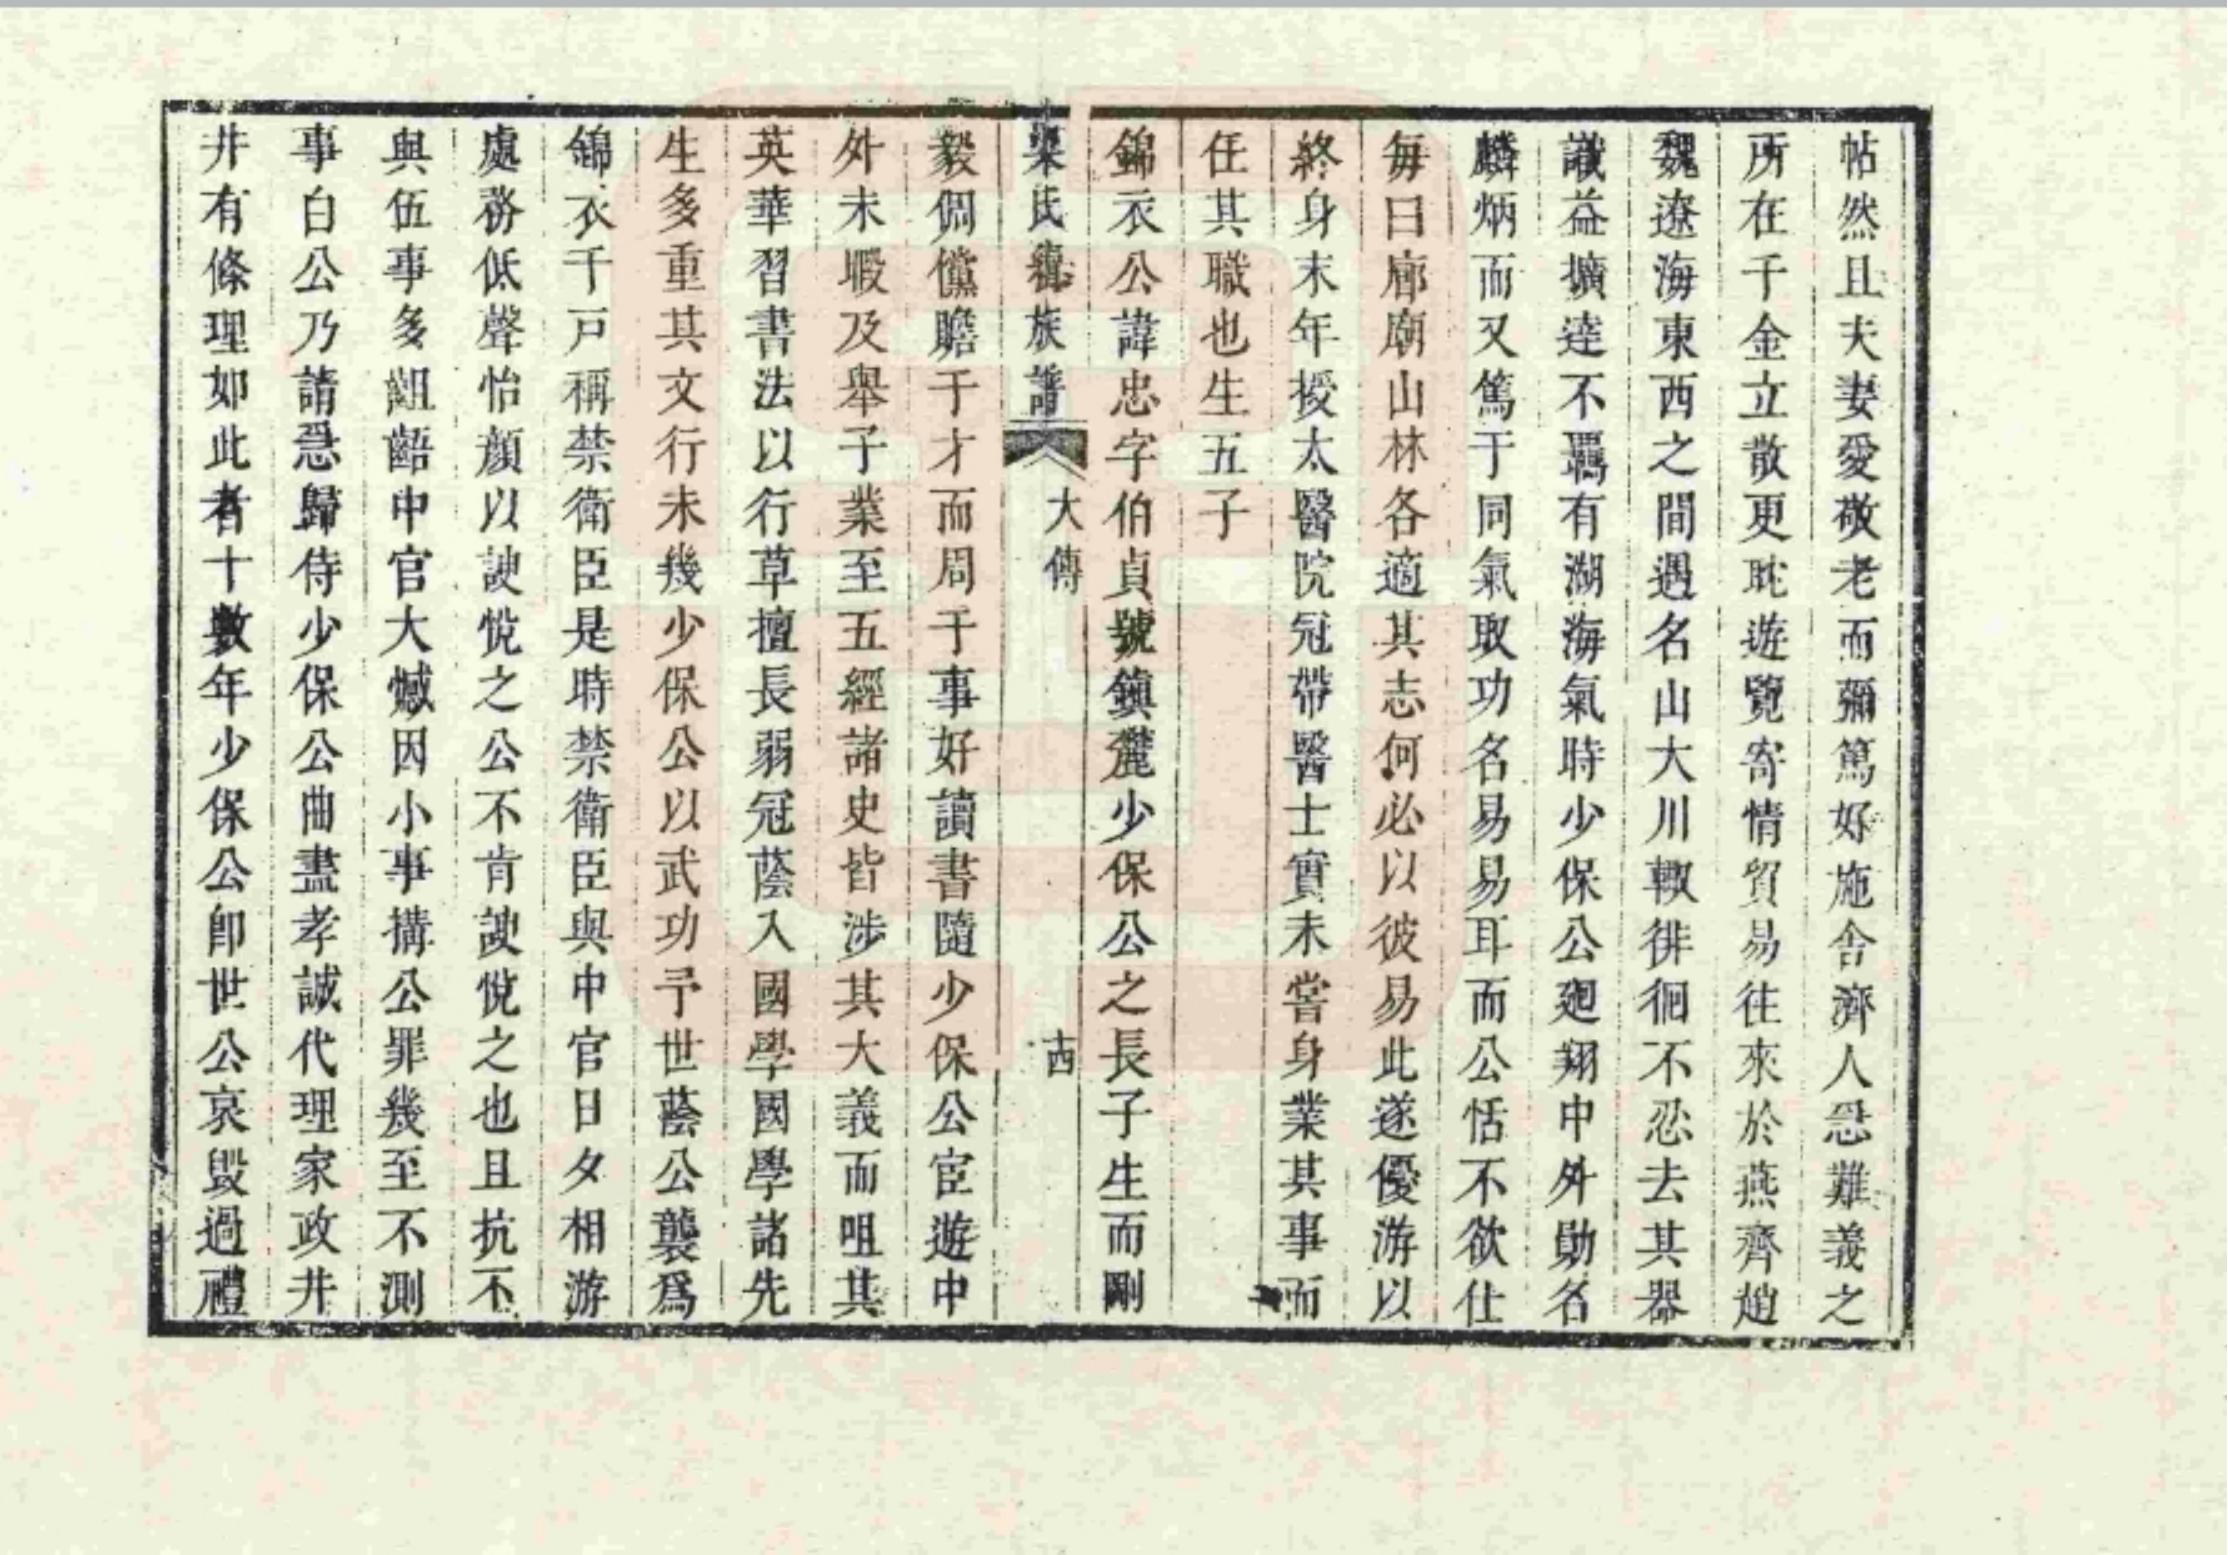 帖然且夫妻愛敬老而彌篤好施舍濟人恐難義之
所在千金立散更耽遊覽寄情貿易往來於燕齊趙
魏遼海東西之間遇名山大川輙徘徊不忍去其器
識益擴達不覊有湖海氣時少保公廻翔中外勛名
麟炳而又篤于同氣取功名易易耳而公恬不欲仕
每曰廊廟山林各適其志何必以彼易此遂優游以
終身末年授太醫院冠帶醫士實未嘗身業其事而
任其職也生五子
錦衣公諱忠字伯貞號鎮麓少保公之長子生而剛
梁氏舊族譜
大傳
十四
毅倜儻贍于才而周于事好讀書隨少保公宦遊中
外未暇及舉子業至五經諸史皆涉其大義而咀其
英華習書法以行草擅長弱冠蔭入國學國學諸先
生多重其文行未幾少保公以武功予世蔭公襲爲
錦衣千戸稱禁衛臣是時禁衛臣與中官日夕相游
處務低聲怡顔以諛悅之公不肯諛悅之也且抗不
與伍事多齟齬中官大憾因小事搆公罪幾至不測
事白公乃請急歸侍少保公曲盡孝誠代理家政井
井有條理如此者十數年少保公卽世公哀毀過禮